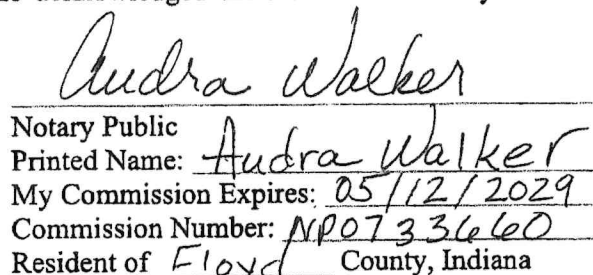 Audra Walker
Notary Public
Printed Name: Audra Walker
My Commission Expires: 05/12/2029
Commission Number: NP0733660
Resident of Floyd County, Indiana